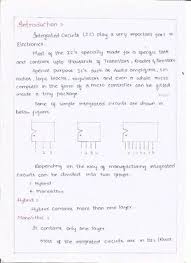 Introduction :
Integrated Circuits (IC) play a very important part in
Electronics.
Most of the IC's specially made for a specific task
and contains upto thousands of Transistors, Diodes & Resistors
Special purpose IC's such as Audio amplifiers, FM
radios, logic blocks, regulators and even a whole micro
computer in the form of a micro controller can be fitted
inside a tiny package.
Some of simple integrated circuits are shown in
below figures.
Depending on the way of manufacturing integrated
circuits can be divided into two groups.
Hybrid
Monolithic
Hybrid :
Hybrid contains more than one layer.
Monolithic :
It contains only one layer.
Most of the integrated circuits are in DIL (Dual